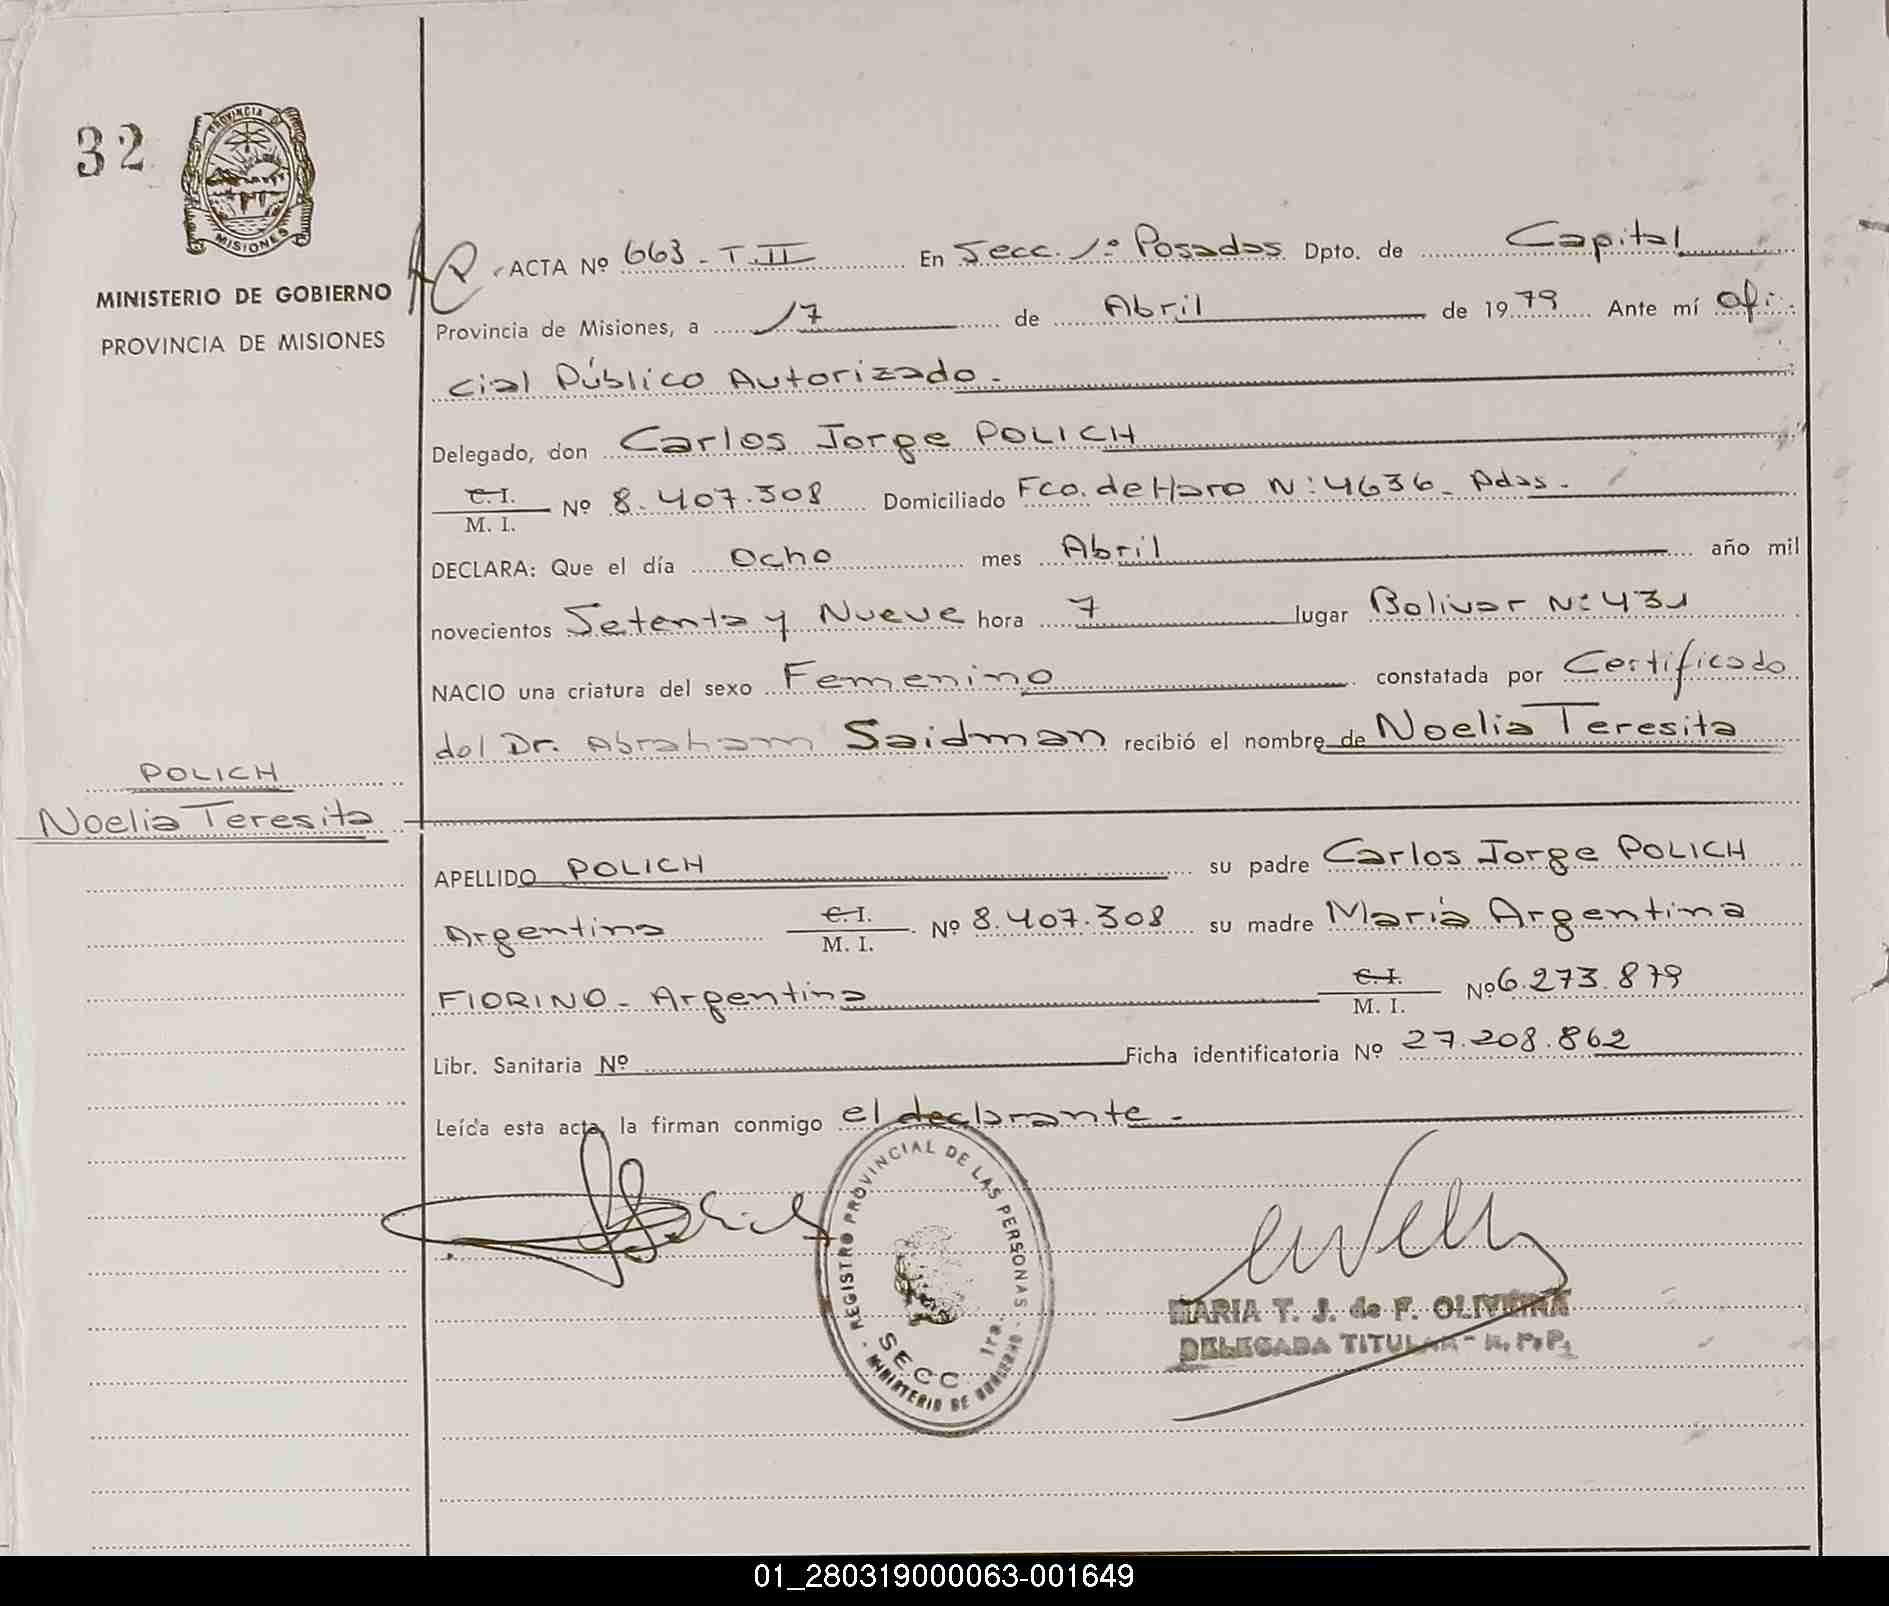 32
PROVINCIA DE
MISIONES
MINISTERIO DE GOBIERNO
PROVINCIA DE MISIONES
ACTA Nº 663 - T. II En Secc. 1º Posadas Dpto. de Capital
Provincia de Misiones, a 17 de Abril de 1979 Ante mí Ofi-
cial Público Autorizado.
Delegado, don Carlos Jorge POLICH
C. I.
M. I. Nº 8.407.308 Domiciliado Fco. de Haro Nº 4636 - Pdas.
DECLARA: Que el día Ocho mes Abril año mil
novecientos Setenta y Nueve hora 7 lugar Bolivar Nº 431
NACIO una criatura del sexo Femenino constatada por Certificado
del Dr. Abraham Saidman recibió el nombre de Noelia Teresita
POLICH
Noelia Teresita
APELLIDO POLICH su padre Carlos Jorge POLICH
Argentina C. I.
M. I. Nº 8.407.308 su madre María Argentina
FIORINO - Argentina C. I.
M. I. Nº 6.273.879
Libr. Sanitaria Nº Ficha identificatoria Nº 27.208.862
Leída esta acta, la firman conmigo el declarante.-
REGISTRO PROVINCIAL DE LAS PERSONAS
SECC. 1ra.
MINISTERIO DE GOBIERNO
MARIA T. J. de F. OLIVEIRA
DELEGADA TITULAR - R. P. P.
01_280319000063-001649